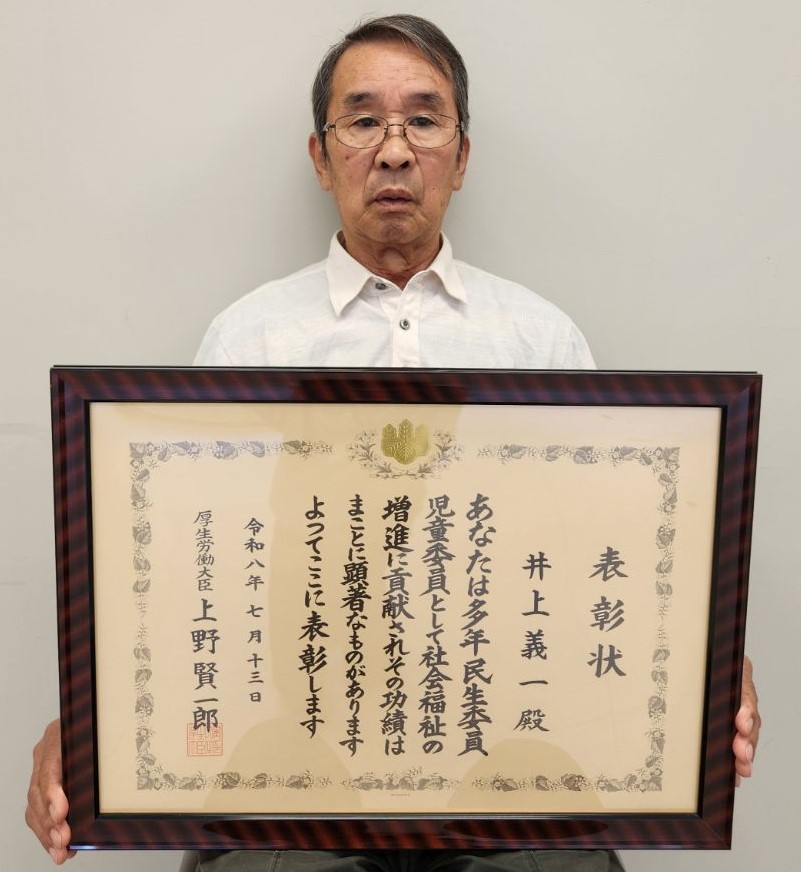 表彰状
井上義一殿
あなたは多年民生委員
児童委員として社会福祉の
増進に貢献されその功績は
まことに顕著なものがあります
よってここに表彰します
令和八年七月十三日
厚生労働大臣 上野賢一郎